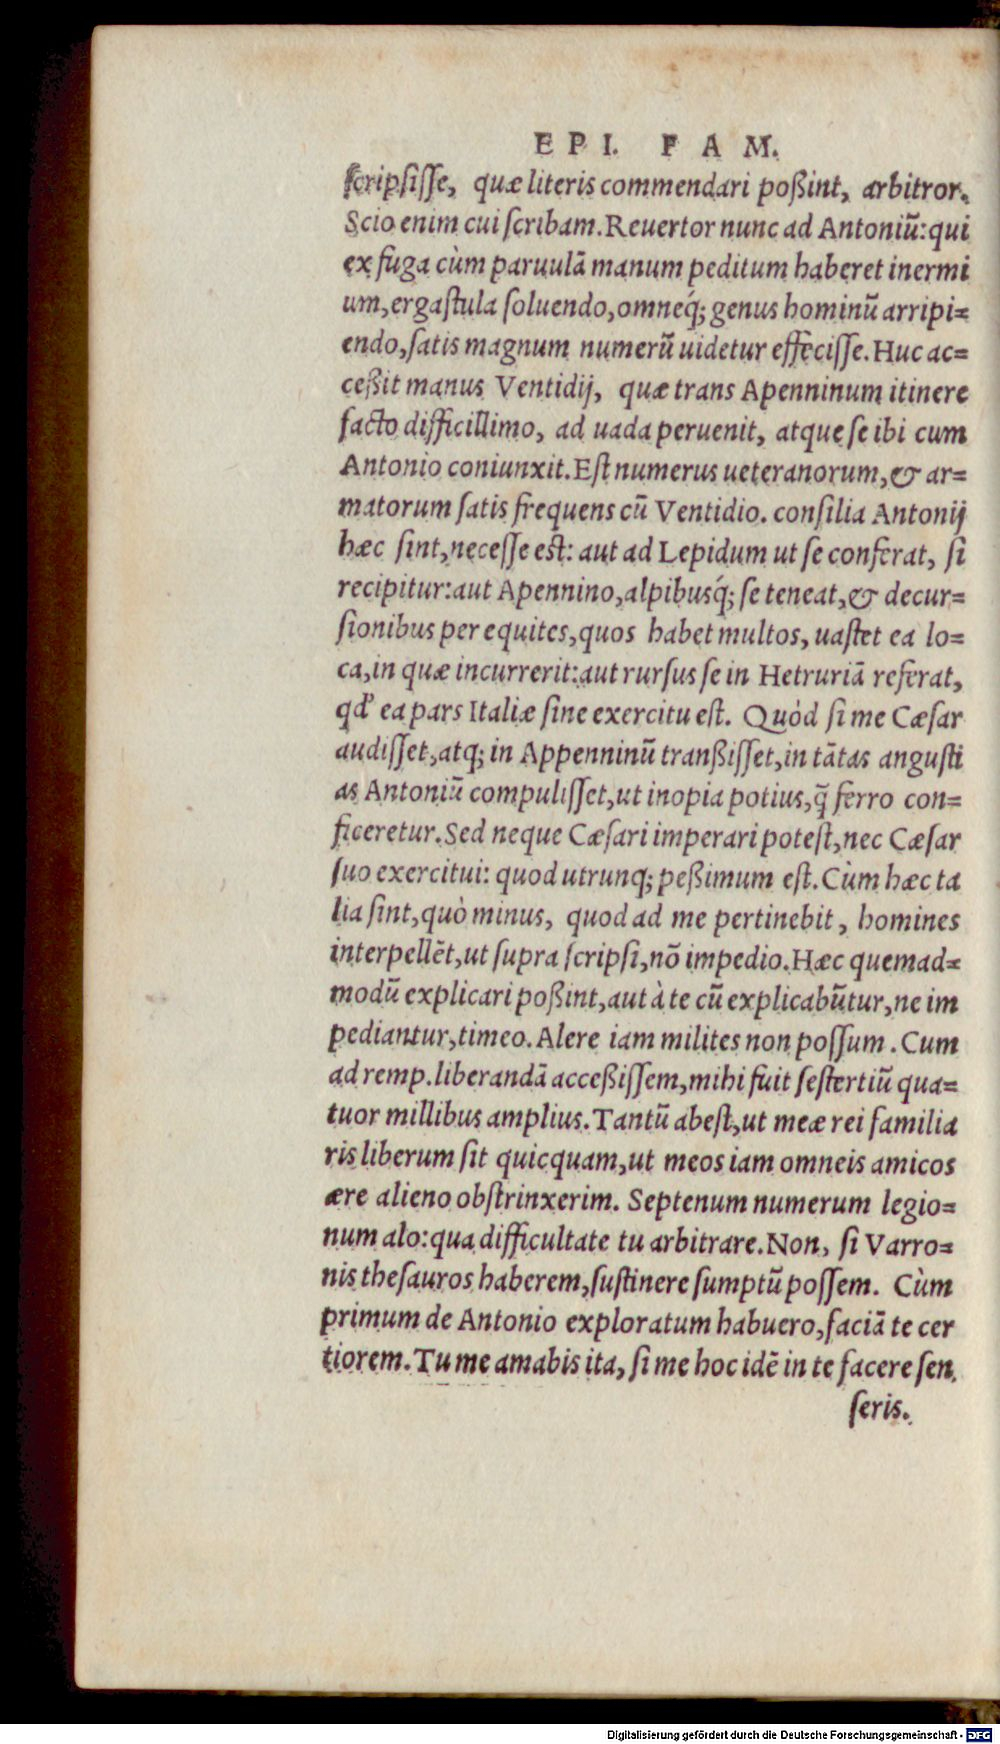 EPI. FAM.
ſcripſiſſe, quæ literis commendari poßint, arbitror.
Scio enim cui ſcribam. Reuertor nunc ad Antoniũ: qui
ex fuga cùm paruulã manum peditum haberet inermi
um, ergaſtula ſoluendo, omneq́; genus hominũ arripi=
endo, ſatis magnum numerũ uidetur effeciſſe. Huc ac=
ceßit manus Ventidij, quæ trans Apenninum itinere
facto difficillimo, ad uada peruenit, atque ſe ibi cum
Antonio coniunxit. Eſt numerus ueteranorum, & ar=
matorum ſatis frequens cũ Ventidio. conſilia Antonij
hæc ſint, neceſſe eſt: aut ad Lepidum ut ſe conferat, ſi
recipitur: aut Apennino, alpibusq́; ſe teneat, & decur=
ſionibus per equites, quos habet multos, uaſtet ea lo=
ca, in quæ incurrerit: aut rurſus ſe in Hetruriã referat,
qđ ea pars Italiæ ſine exercitu eſt. Quòd ſi me Cæſar
audiſſet, atq; in Appenninũ tranßiſſet, in tãtas anguſti
as Antoniũ compuliſſet, ut inopia potius, q̃ ferro con=
ficeretur. Sed neque Cæſari imperari poteſt, nec Cæſar
ſuo exercitui: quod utrunq; peßimum eſt. Cùm hæc ta
lia ſint, quò minus, quod ad me pertinebit, homines
interpellẽt, ut ſupra ſcripſi, nõ impedio. Hæc quemad=
modũ explicari poßint, aut à te cũ explicabũtur, ne im
pediantur, timeo. Alere iam milites non poſſum. Cum
ad remp. liberandã acceßiſſem, mihi fuit ſeſtertiũ qua=
tuor millibus amplius. Tantũ abeſt, ut meæ rei familia
ris liberum ſit quicquam, ut meos iam omneis amicos
ære alieno obſtrinxerim. Septenum numerum legio=
num alo: qua difficultate tu arbitrare. Non, ſi Varro=
nis theſauros haberem, ſuſtinere ſumptũ poſſem. Cùm
primum de Antonio exploratum habuero, faciã te cer
tiorem. Tu me amabis ita, ſi me hoc idẽ in te facere ſen
ſeris.
Digitalisierung gefördert durch die Deutsche Forschungsgemeinschaft - DFG